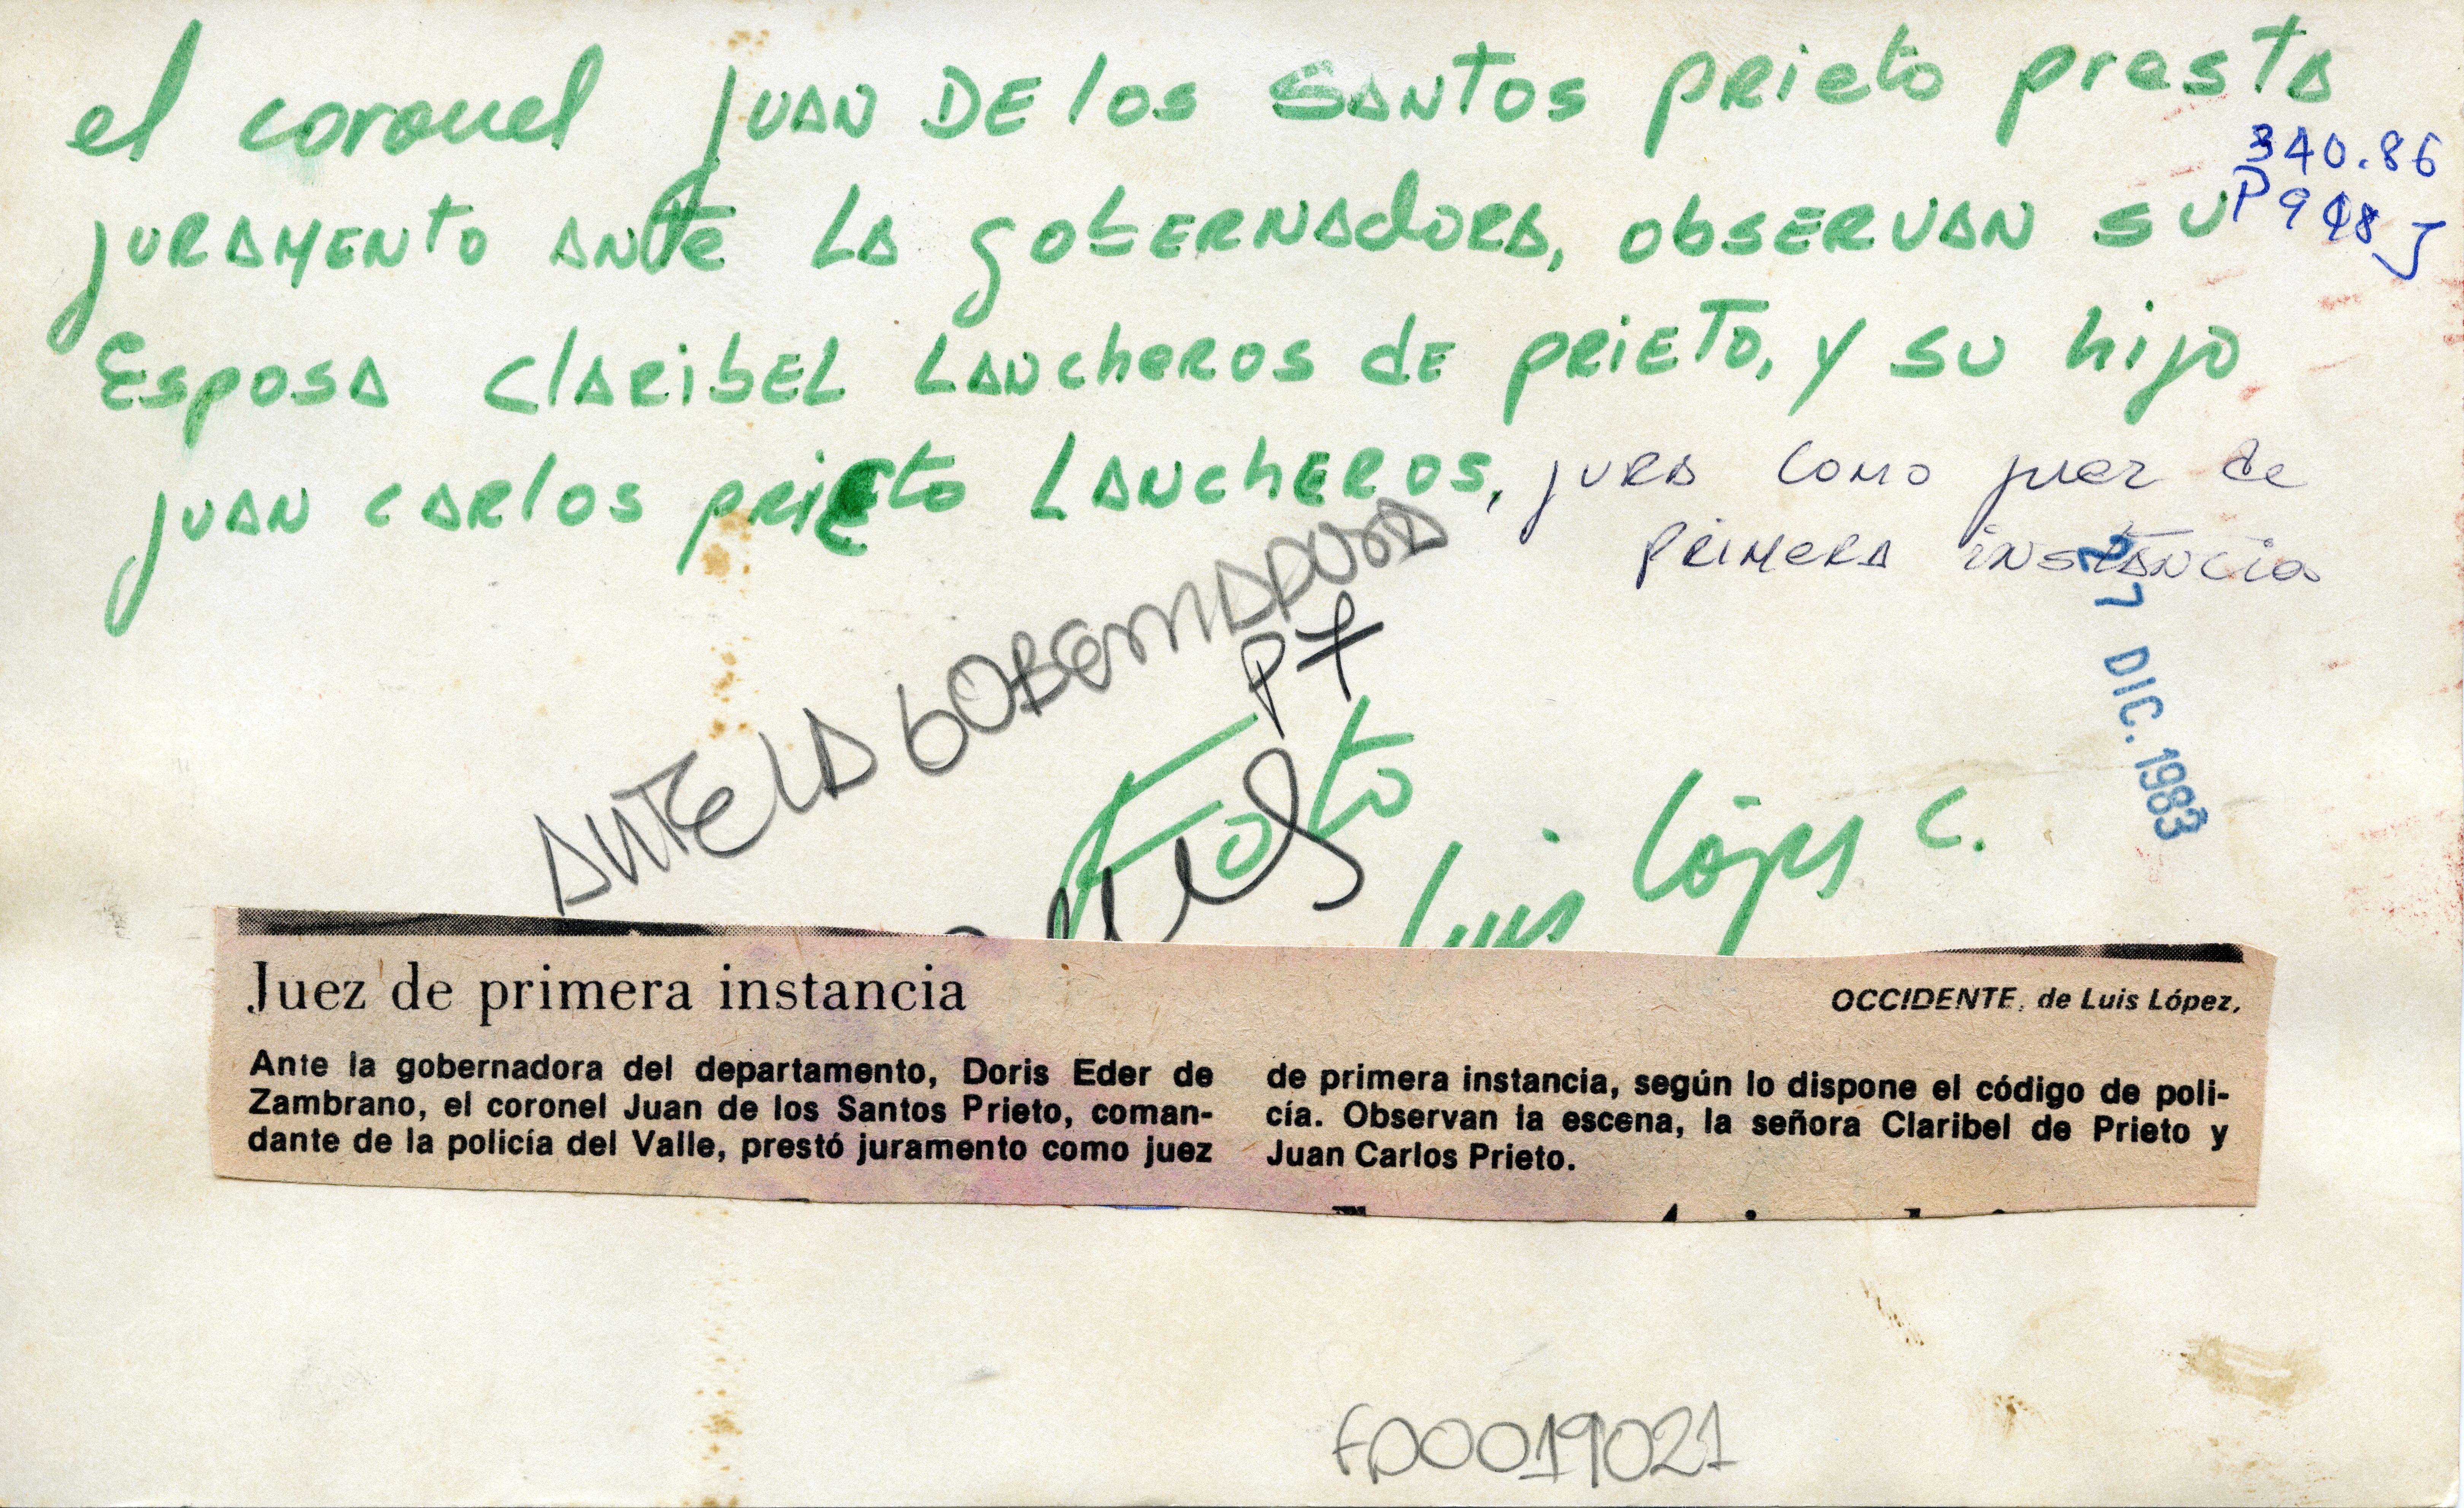 el coronel JUAN DE los SANTOS PRIETO presta
340.86
P948J
JURAMENTO ANTE LA gobERNAdORA, obSERVAN SU
ESPOSA CLARIbEL LANchEROS dE PRIETO, y SU hijo
JUAN CARLOS PRIETO LANCHEROS, JURA COMO juez de
PRIMERA iNSTANCIA
27 DIC. 1983
ANTE LA GOBERNADORA
Foto Luis López C.
Juez de primera instancia
OCCIDENTE, de Luis López,
Ante la gobernadora del departamento, Doris Eder de
Zambrano, el coronel Juan de los Santos Prieto, coman-
dante de la policía del Valle, prestó juramento como juez
de primera instancia, según lo dispone el código de poli-
cía. Observan la escena, la señora Claribel de Prieto y
Juan Carlos Prieto.
F00019021